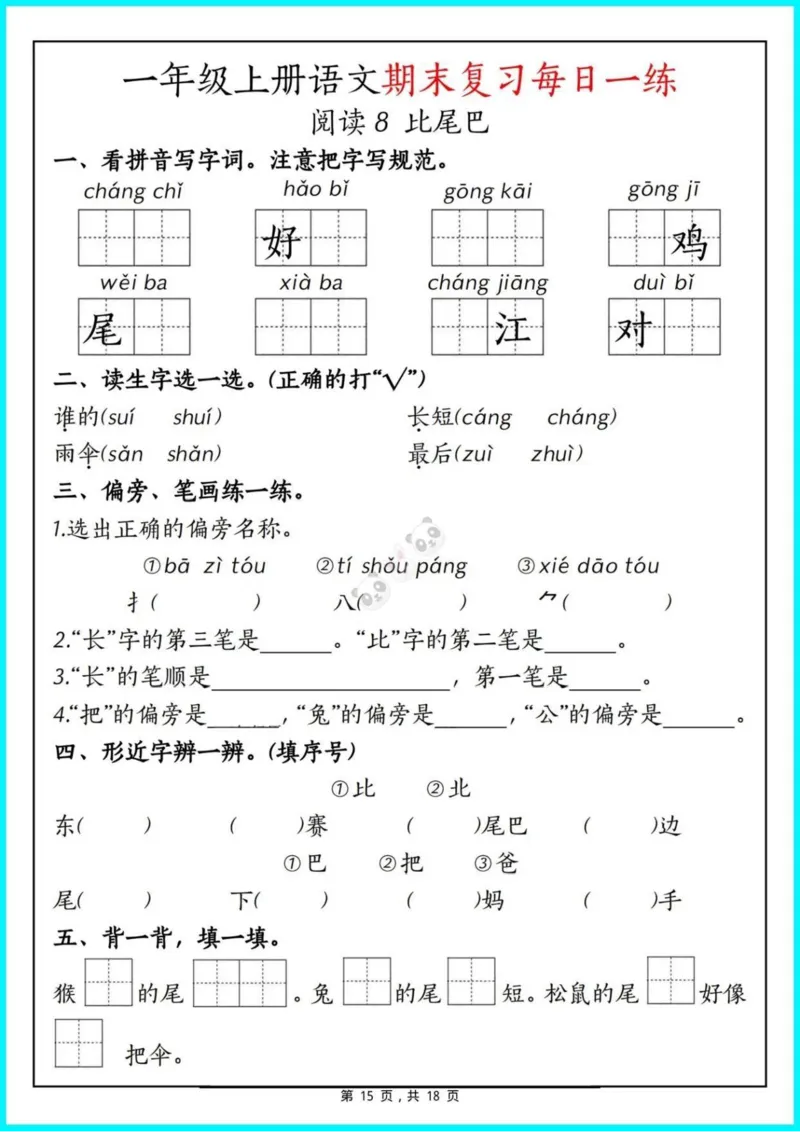 一年级上册语文期末复习每日一练
阅读 8 比尾巴
一、看拼音写字词。注意把字写规范。
cháng chǐ hǎo bǐ gōng kāi gōng jī
好 鸡
wěi ba xià ba cháng jiāng duì bǐ
尾 江 对
二、读生字选一选。(正确的打“√”)
谁的(suí shuí) 长短(cáng cháng)
雨伞(sǎn shǎn) 最后(zuì zhuì)
三、偏旁、笔画练一练。
1.选出正确的偏旁名称。
①bā zì tóu ②tí shǒu páng ③xié dāo tóu
扌( ) 八( ) ⺈( )
2.“长”字的第三笔是______。“比”字的第二笔是______。
3.“长”的笔顺是____________________，第一笔是______。
4.“把”的偏旁是______,“兔”的偏旁是______,“公”的偏旁是______。
四、形近字辨一辨。(填序号)
①比 ②北
东( ) ( )赛 ( )尾巴 ( )边
①巴 ②把 ③爸
尾( ) 下( ) ( )妈 ( )手
五、背一背，填一填。
猴 的尾 。兔 的尾 短。松鼠的尾 好像
把伞。
第 15 页，共 18 页